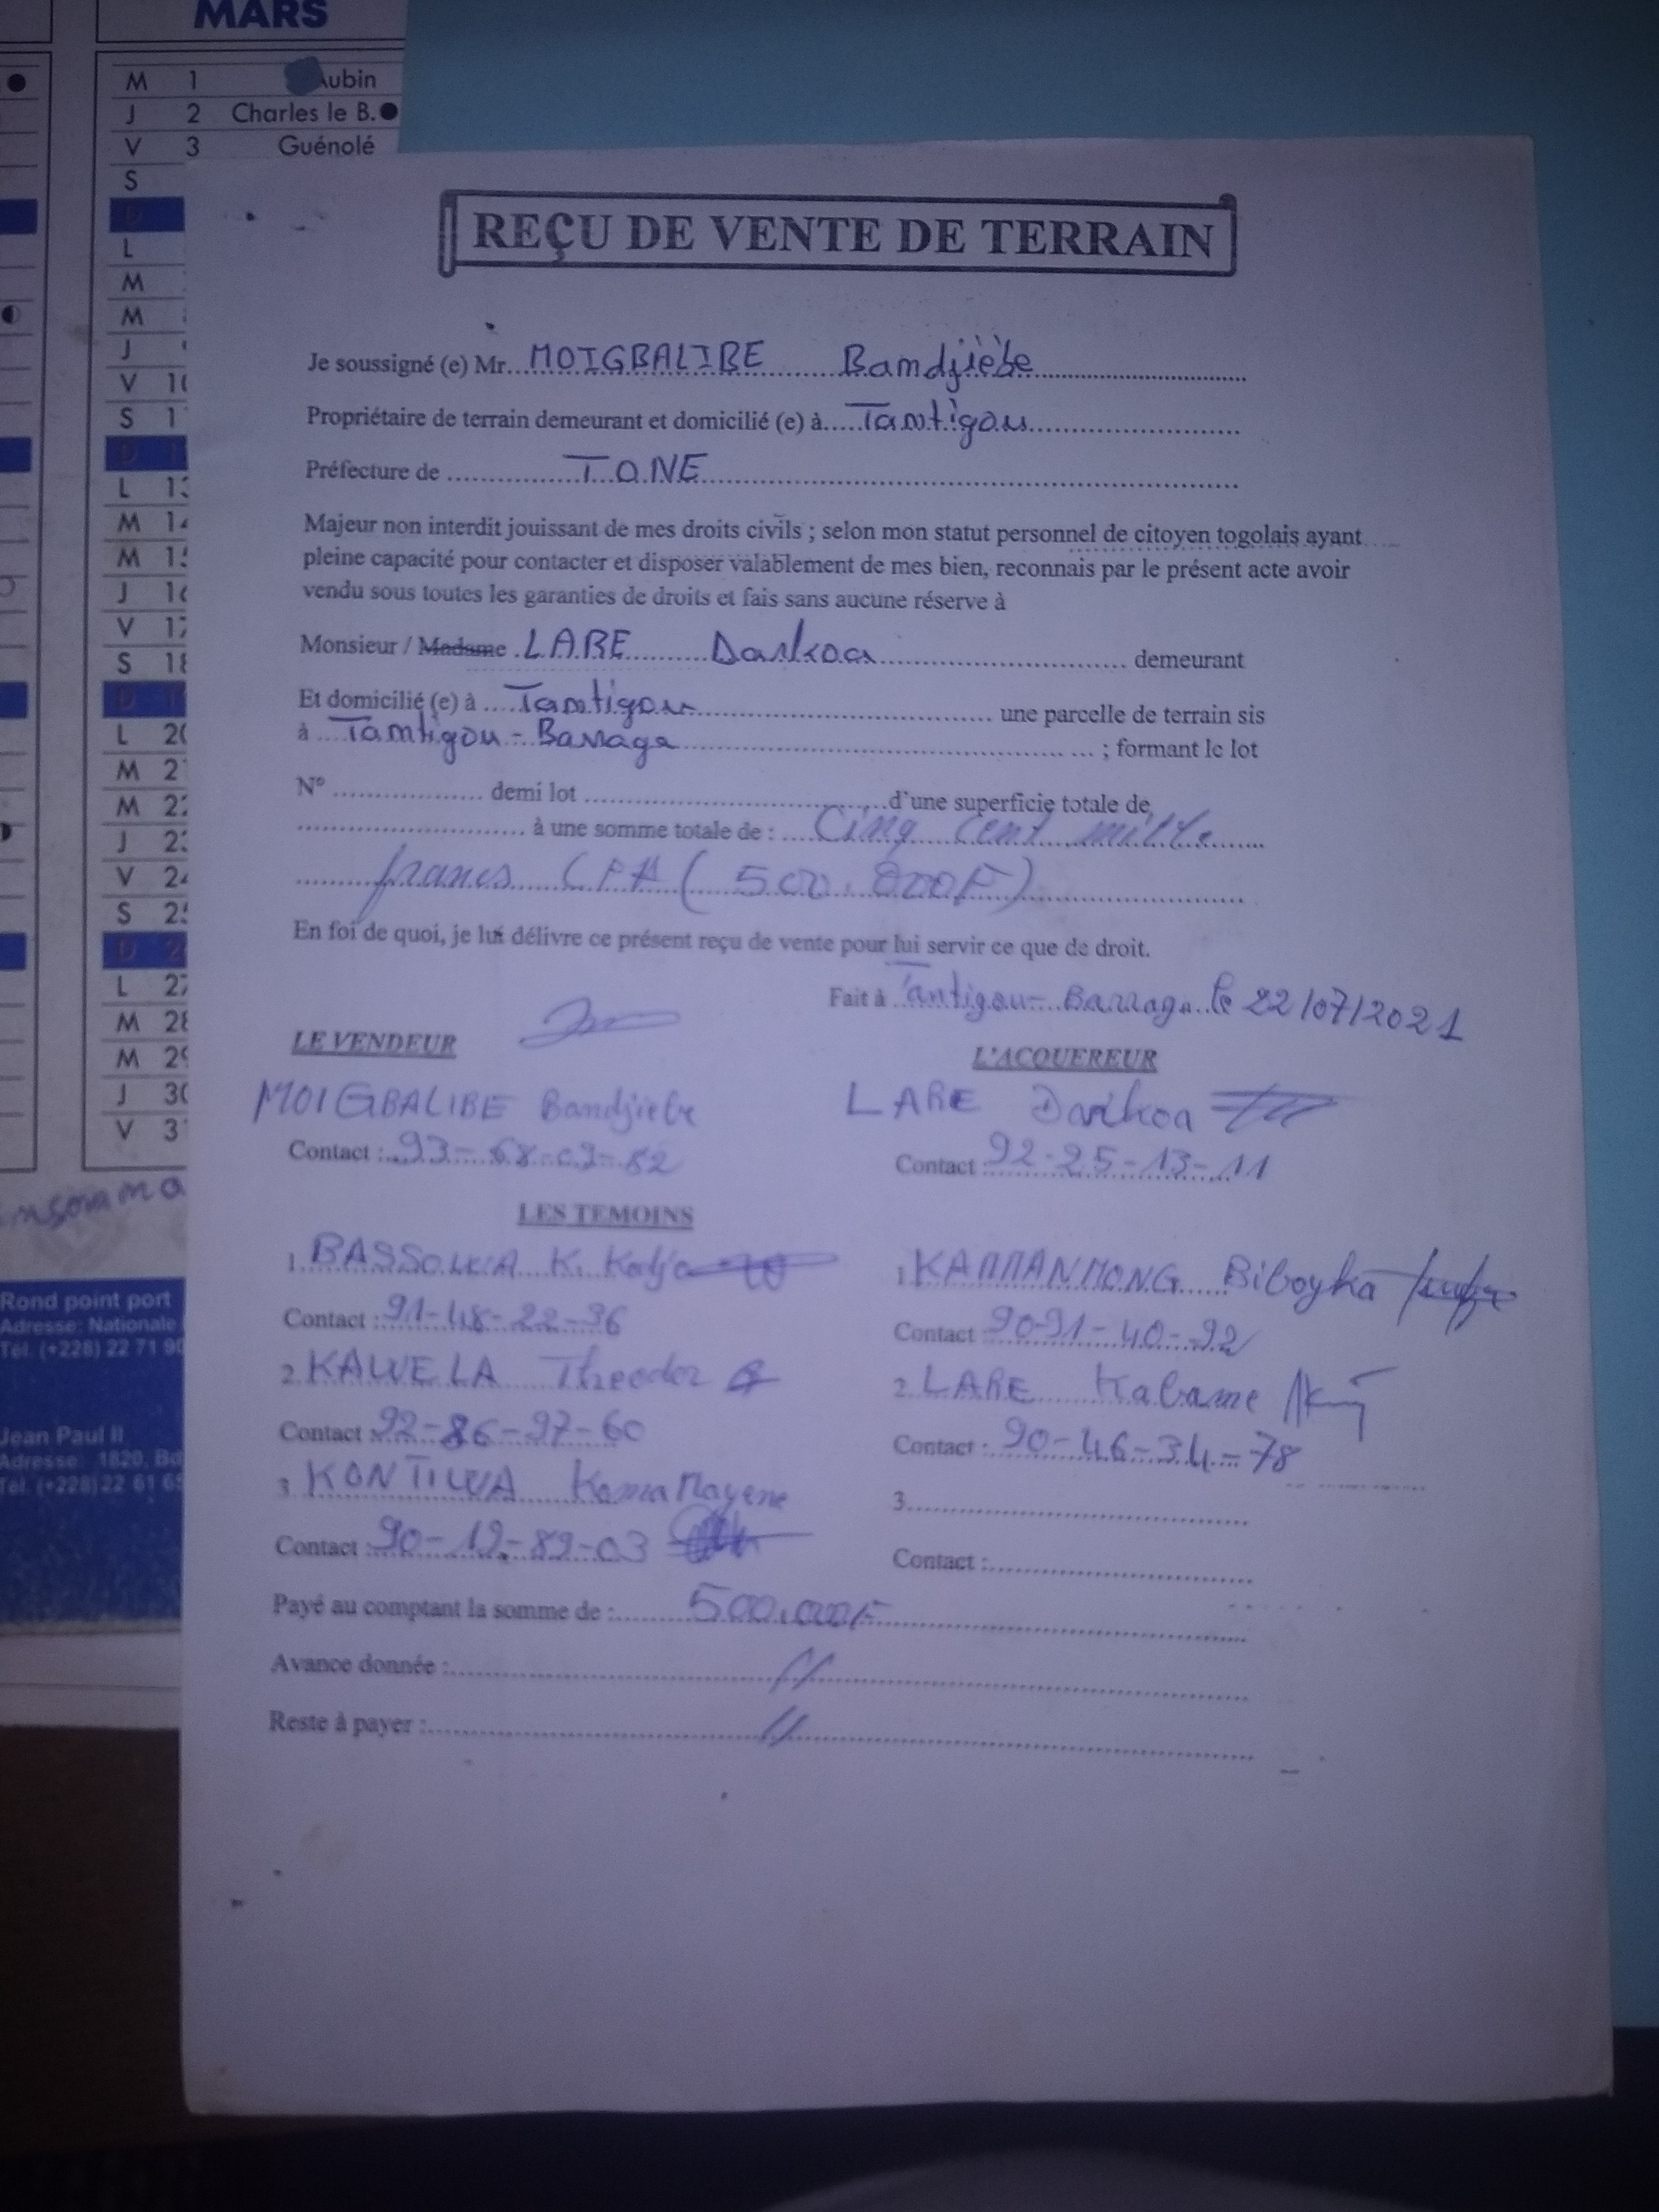 MARS
M 1 Aubin
J 2 Charles le B.
V 3 Guénolé
S
D
L
M
M
J
V 10
S 11
D
L 13
M 14
M 15
J 16
V 17
S 18
D
L 20
M 21
M 22
J 23
V 24
S 25
D
L 27
M 28
M 29
J 30
V 31
Rond point port
Adresse: Nationale
Tél. (+228) 22 71 90
Jean Paul II
Adresse: 1820, Bd
Tél. (+228) 22 61 65
REÇU DE VENTE DE TERRAIN
Je soussigné (e) Mr. MOIGBALIBE Bamdjièbe
Propriétaire de terrain demeurant et domicilié (e) à Tamtigou
Préfecture de TONE
Majeur non interdit jouissant de mes droits civils ; selon mon statut personnel de citoyen togolais ayant
pleine capacité pour contacter et disposer valablement de mes bien, reconnais par le présent acte avoir
vendu sous toutes les garanties de droits et fais sans aucune réserve à
Monsieur / Madame LARE Darkoa demeurant
Et domicilié (e) à Tamtigou une parcelle de terrain sis
à Tamtigou - Barrage ; formant le lot
N° demi lot d'une superficie totale de
à une somme totale de : Cinq cent mille
francs CFA ( 500.000F)
En foi de quoi, je lui délivre ce présent reçu de vente pour lui servir ce que de droit.
Fait à Tantigou - Barrage le 22/07/2021
LE VENDEUR
L'ACQUEREUR
MOIGBALIBE Bandjiebe
LARE Darikoa
Contact : 93-68-09-82
Contact 92-25-13-11
LES TEMOINS
1. BASSOWA K. Kodjo
1. KAMMANMONG Biboyka
Contact : 91-48-22-36
Contact 90 91-40-92
2. KAWELA Theodor
2. LARE Kabame
Contact : 92-86-97-60
Contact : 90-46-34-78
3. KONTIWA KomaMayene
3.
Contact : 90-19-89-03
Contact :
Payé au comptant la somme de : 500.000F
Avance donnée : //
Reste à payer : //